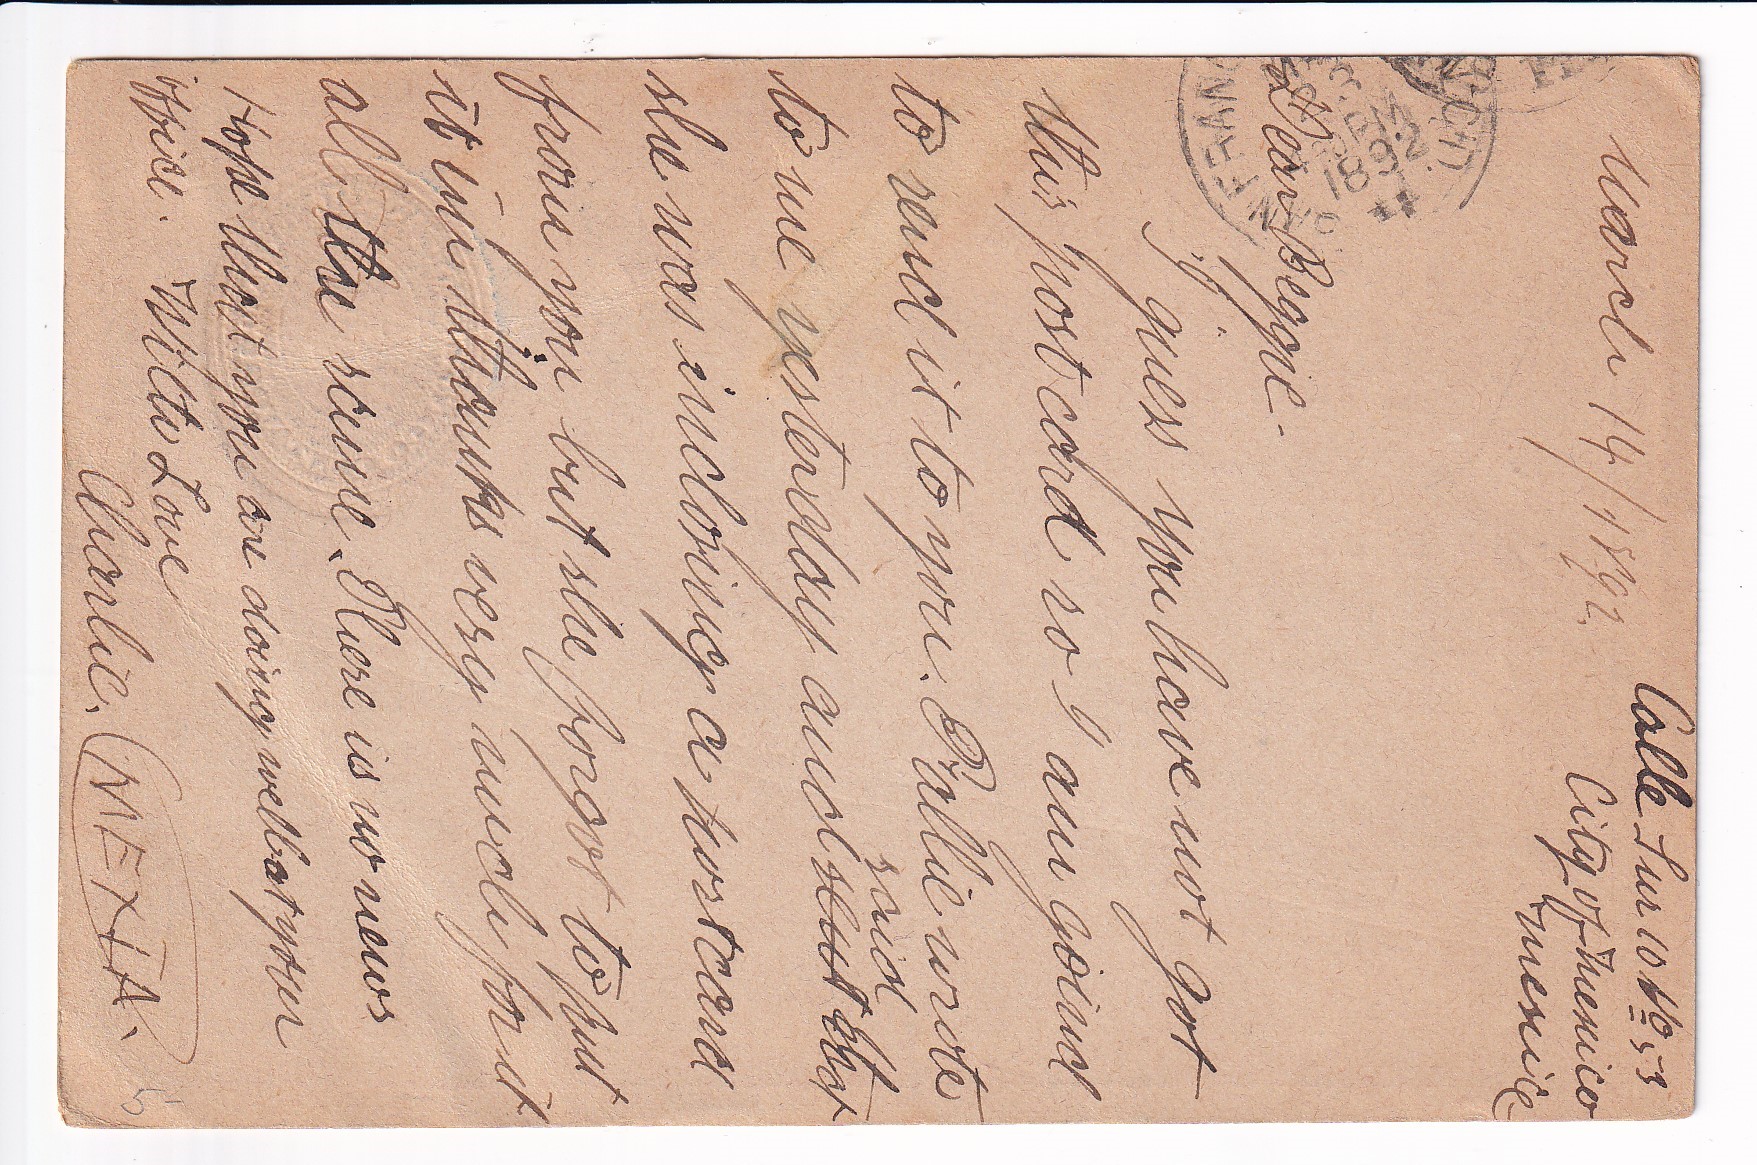 Calle Sur 10 No 53
City of Mexico
Mexico
March 14/1892.
Dear Beggie.
I guess you have not got
this post card so I am going
to send it to you. Billie wrote
said
to me yesterday and that
she was inclosing a postcard
from you but she forgot to put
it in. Thanks very much for it
all the same. There is no news
Hope that you are doing well at your
office. With Love
Charlie.
MEXIA.
5-
SAN FRANC
1892